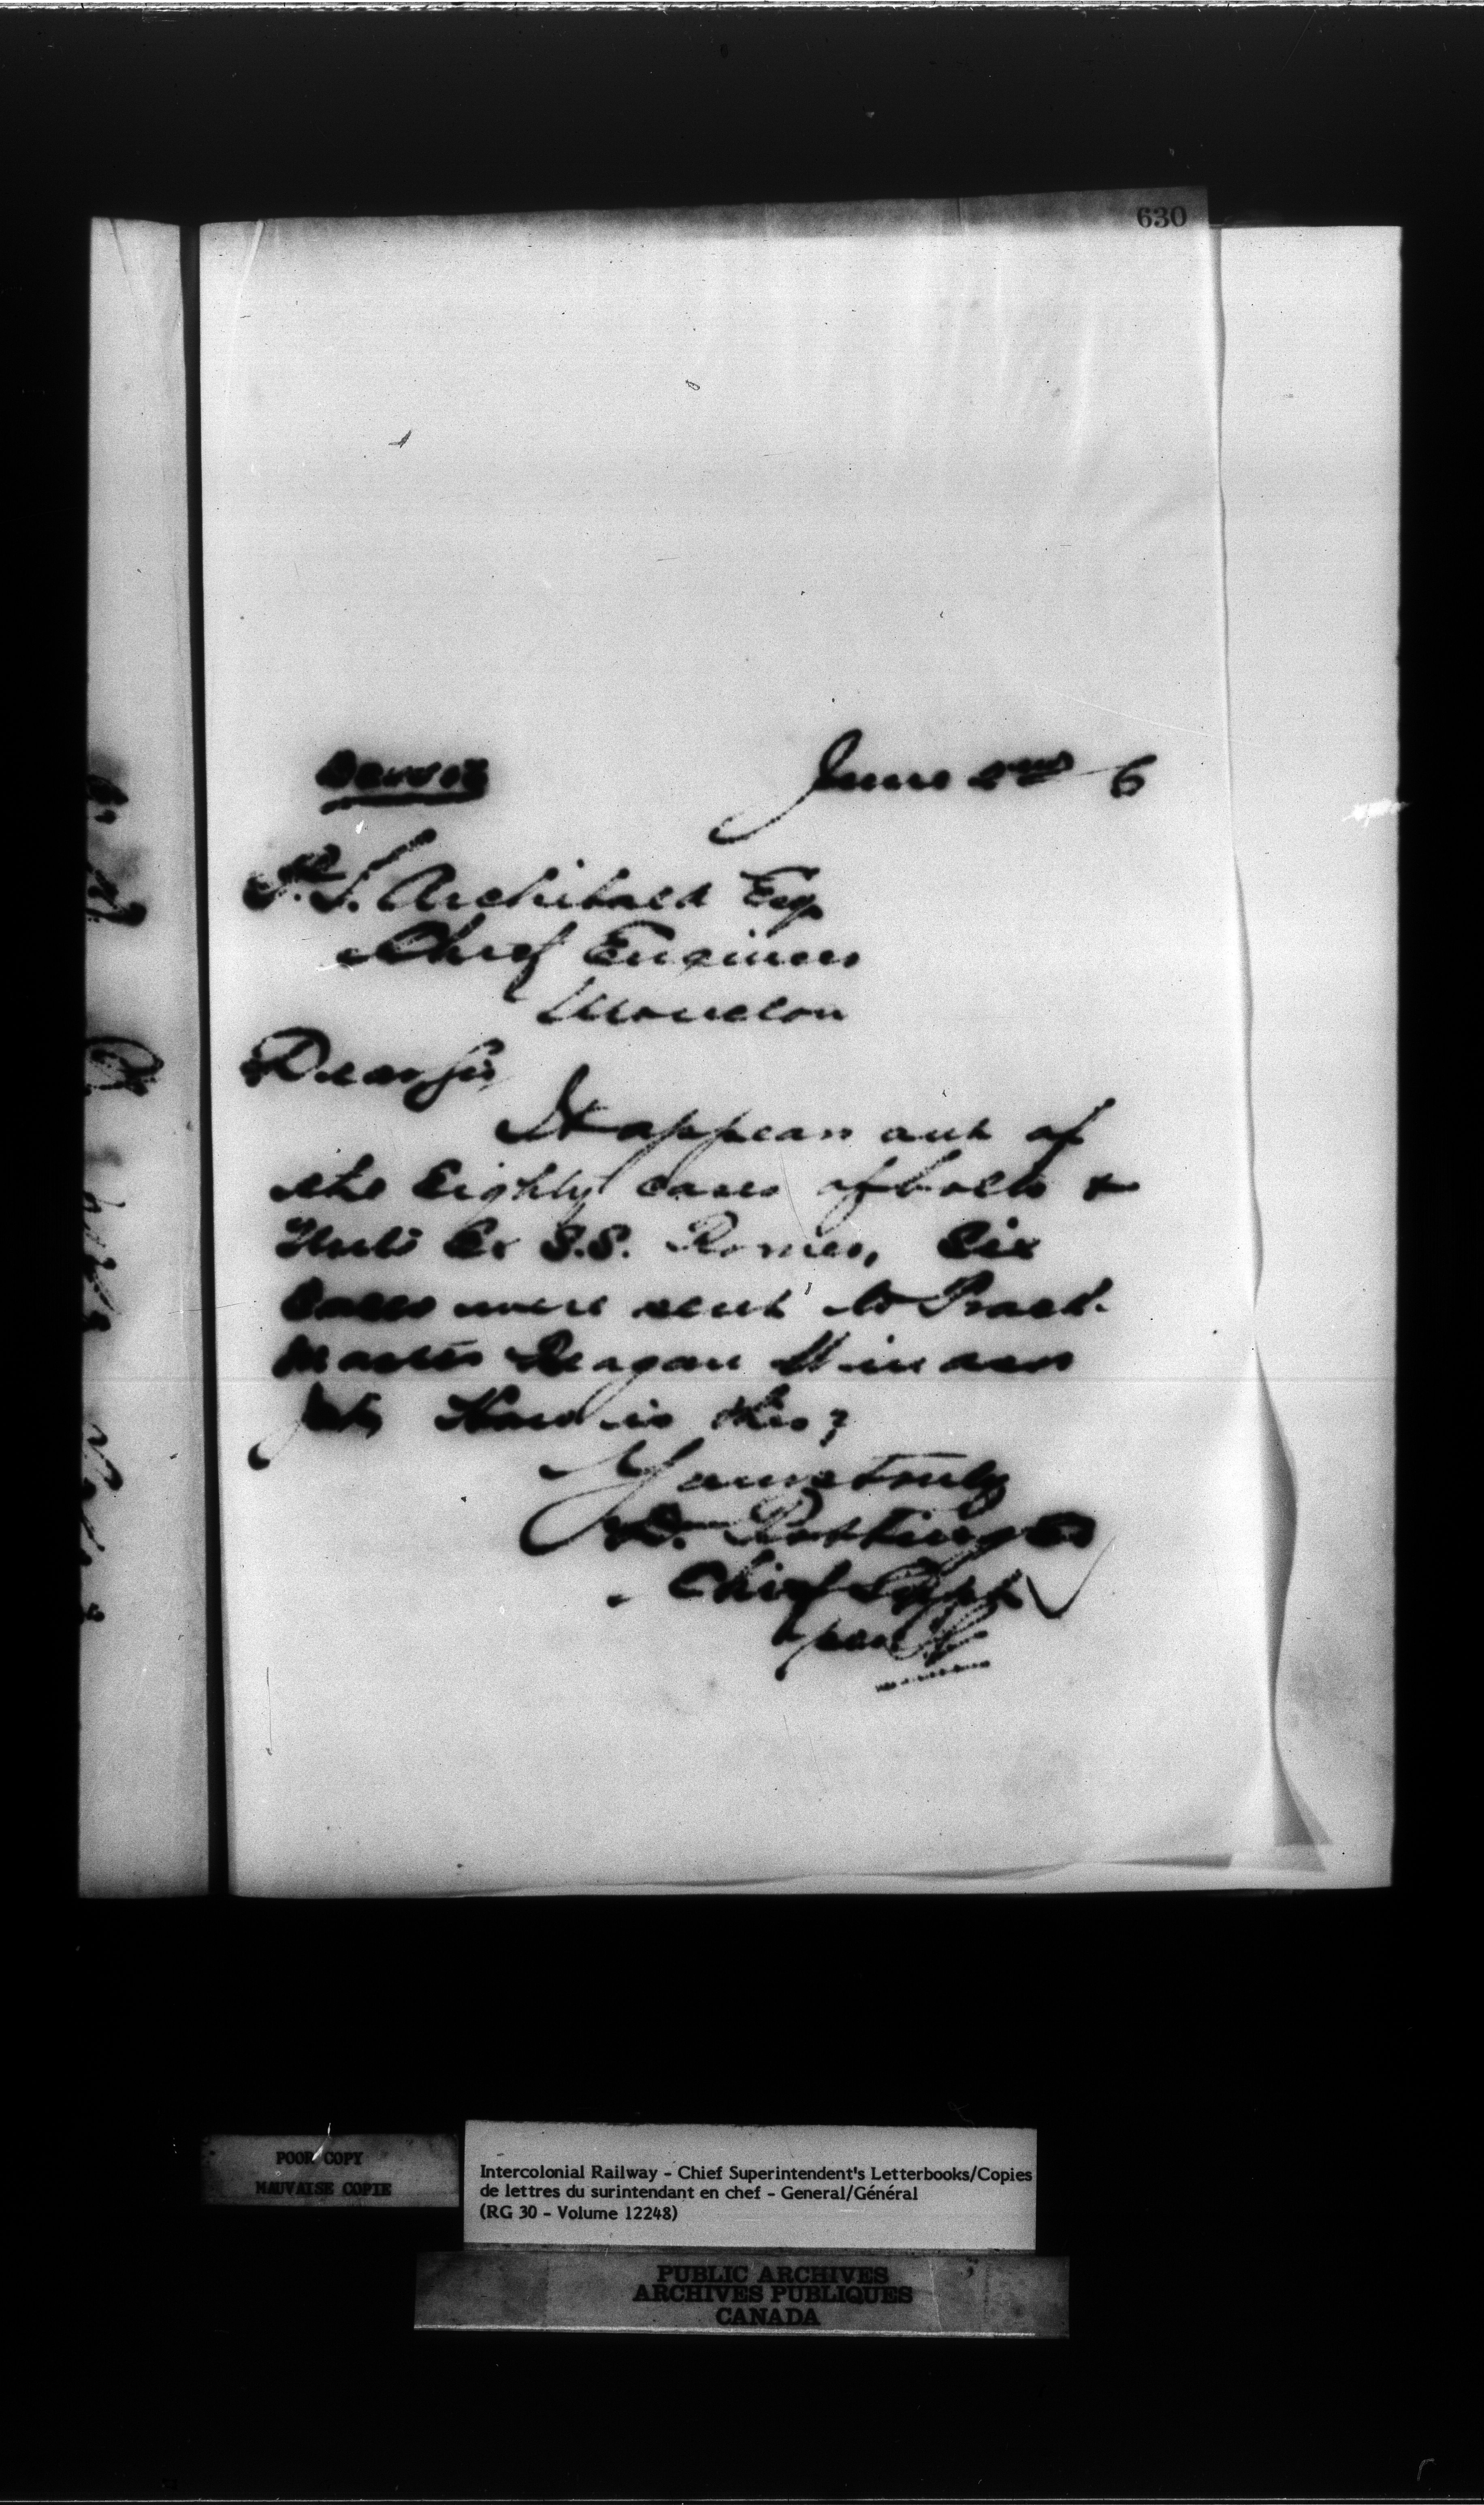 630
June 2nd 6
P.S. Archibald Esq
Chief Engineer
Moncton
Dear Sir
It appears out of
the Eighty cases of bolts &
Nuts Ex S.S. Romeo, Six
Cases were sent to Track
Master Reagan Windsor
Jct, How is this?
Yours truly
D. Pottinger
Chief Supt
per
POOR COPY
MAUVAISE COPIE
Intercolonial Railway - Chief Superintendent's Letterbooks/Copies
de lettres du surintendant en chef - General/Général
(RG 30 - Volume 12248)
PUBLIC ARCHIVES
ARCHIVES PUBLIQUES
CANADA